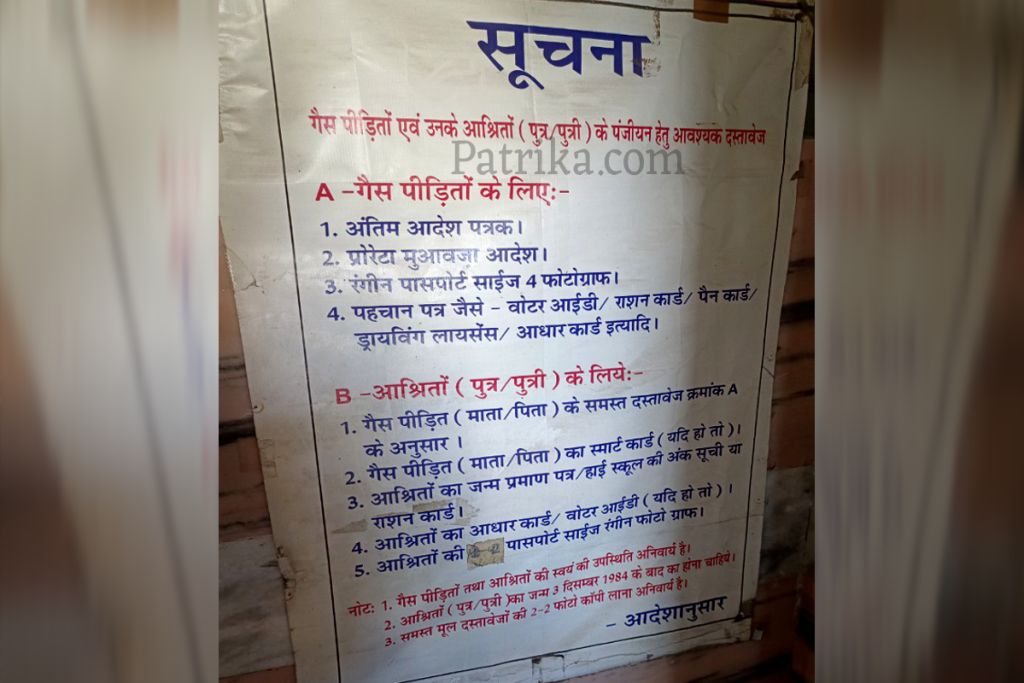 सूचना
गैस पीड़ितों एवं उनके आश्रितों ( पुत्र/पुत्री ) के पंजीयन हेतु आवश्यक दस्तावेज
Patrika.com
A -गैस पीड़ितों के लिए:-
1. अंतिम आदेश पत्रक।
2. प्रोरेटा मुआवजा आदेश।
3. रंगीन पासपोर्ट साईज 4 फोटोग्राफ।
4. पहचान पत्र जैसे - वोटर आईडी/ राशन कार्ड/ पैन कार्ड/
ड्रायविंग लायसेंस/ आधार कार्ड इत्यादि।
B -आश्रितों ( पुत्र/पुत्री ) के लिये:-
1. गैस पीड़ित ( माता/पिता ) के समस्त दस्तावेज क्रमांक A
के अनुसार ।
2. गैस पीड़ित ( माता/पिता ) का स्मार्ट कार्ड ( यदि हो तो )।
3. आश्रितों का जन्म प्रमाण पत्र/हाई स्कूल की अंक सूची या
राशन कार्ड।
4. आश्रितों का आधार कार्ड/ वोटर आईडी ( यदि हो तो ) ।
5. आश्रितों की पासपोर्ट साईज रंगीन फोटो ग्राफ।
नोट: 1. गैस पीड़ितों तथा आश्रितों की स्वयं की उपस्थिति अनिवार्य है।
2. आश्रितों ( पुत्र/पुत्री )का जन्म 3 दिसम्बर 1984 के बाद का होना चाहिये।
3. समस्त मूल दस्तावेजों की 2-2 फोटो कॉपी लाना अनिवार्य है।
- आदेशानुसार